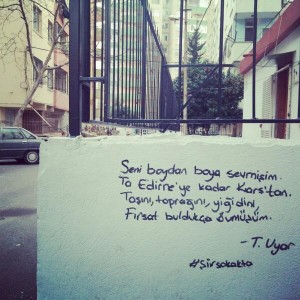 Seni boydan boya sevmişim.
Ta Edirne'ye kadar Kars'tan.
Taşını, toprağını, yiğidini,
Fırsat buldukça övmüşüm.
- T. Uyar
#şiirsokakta